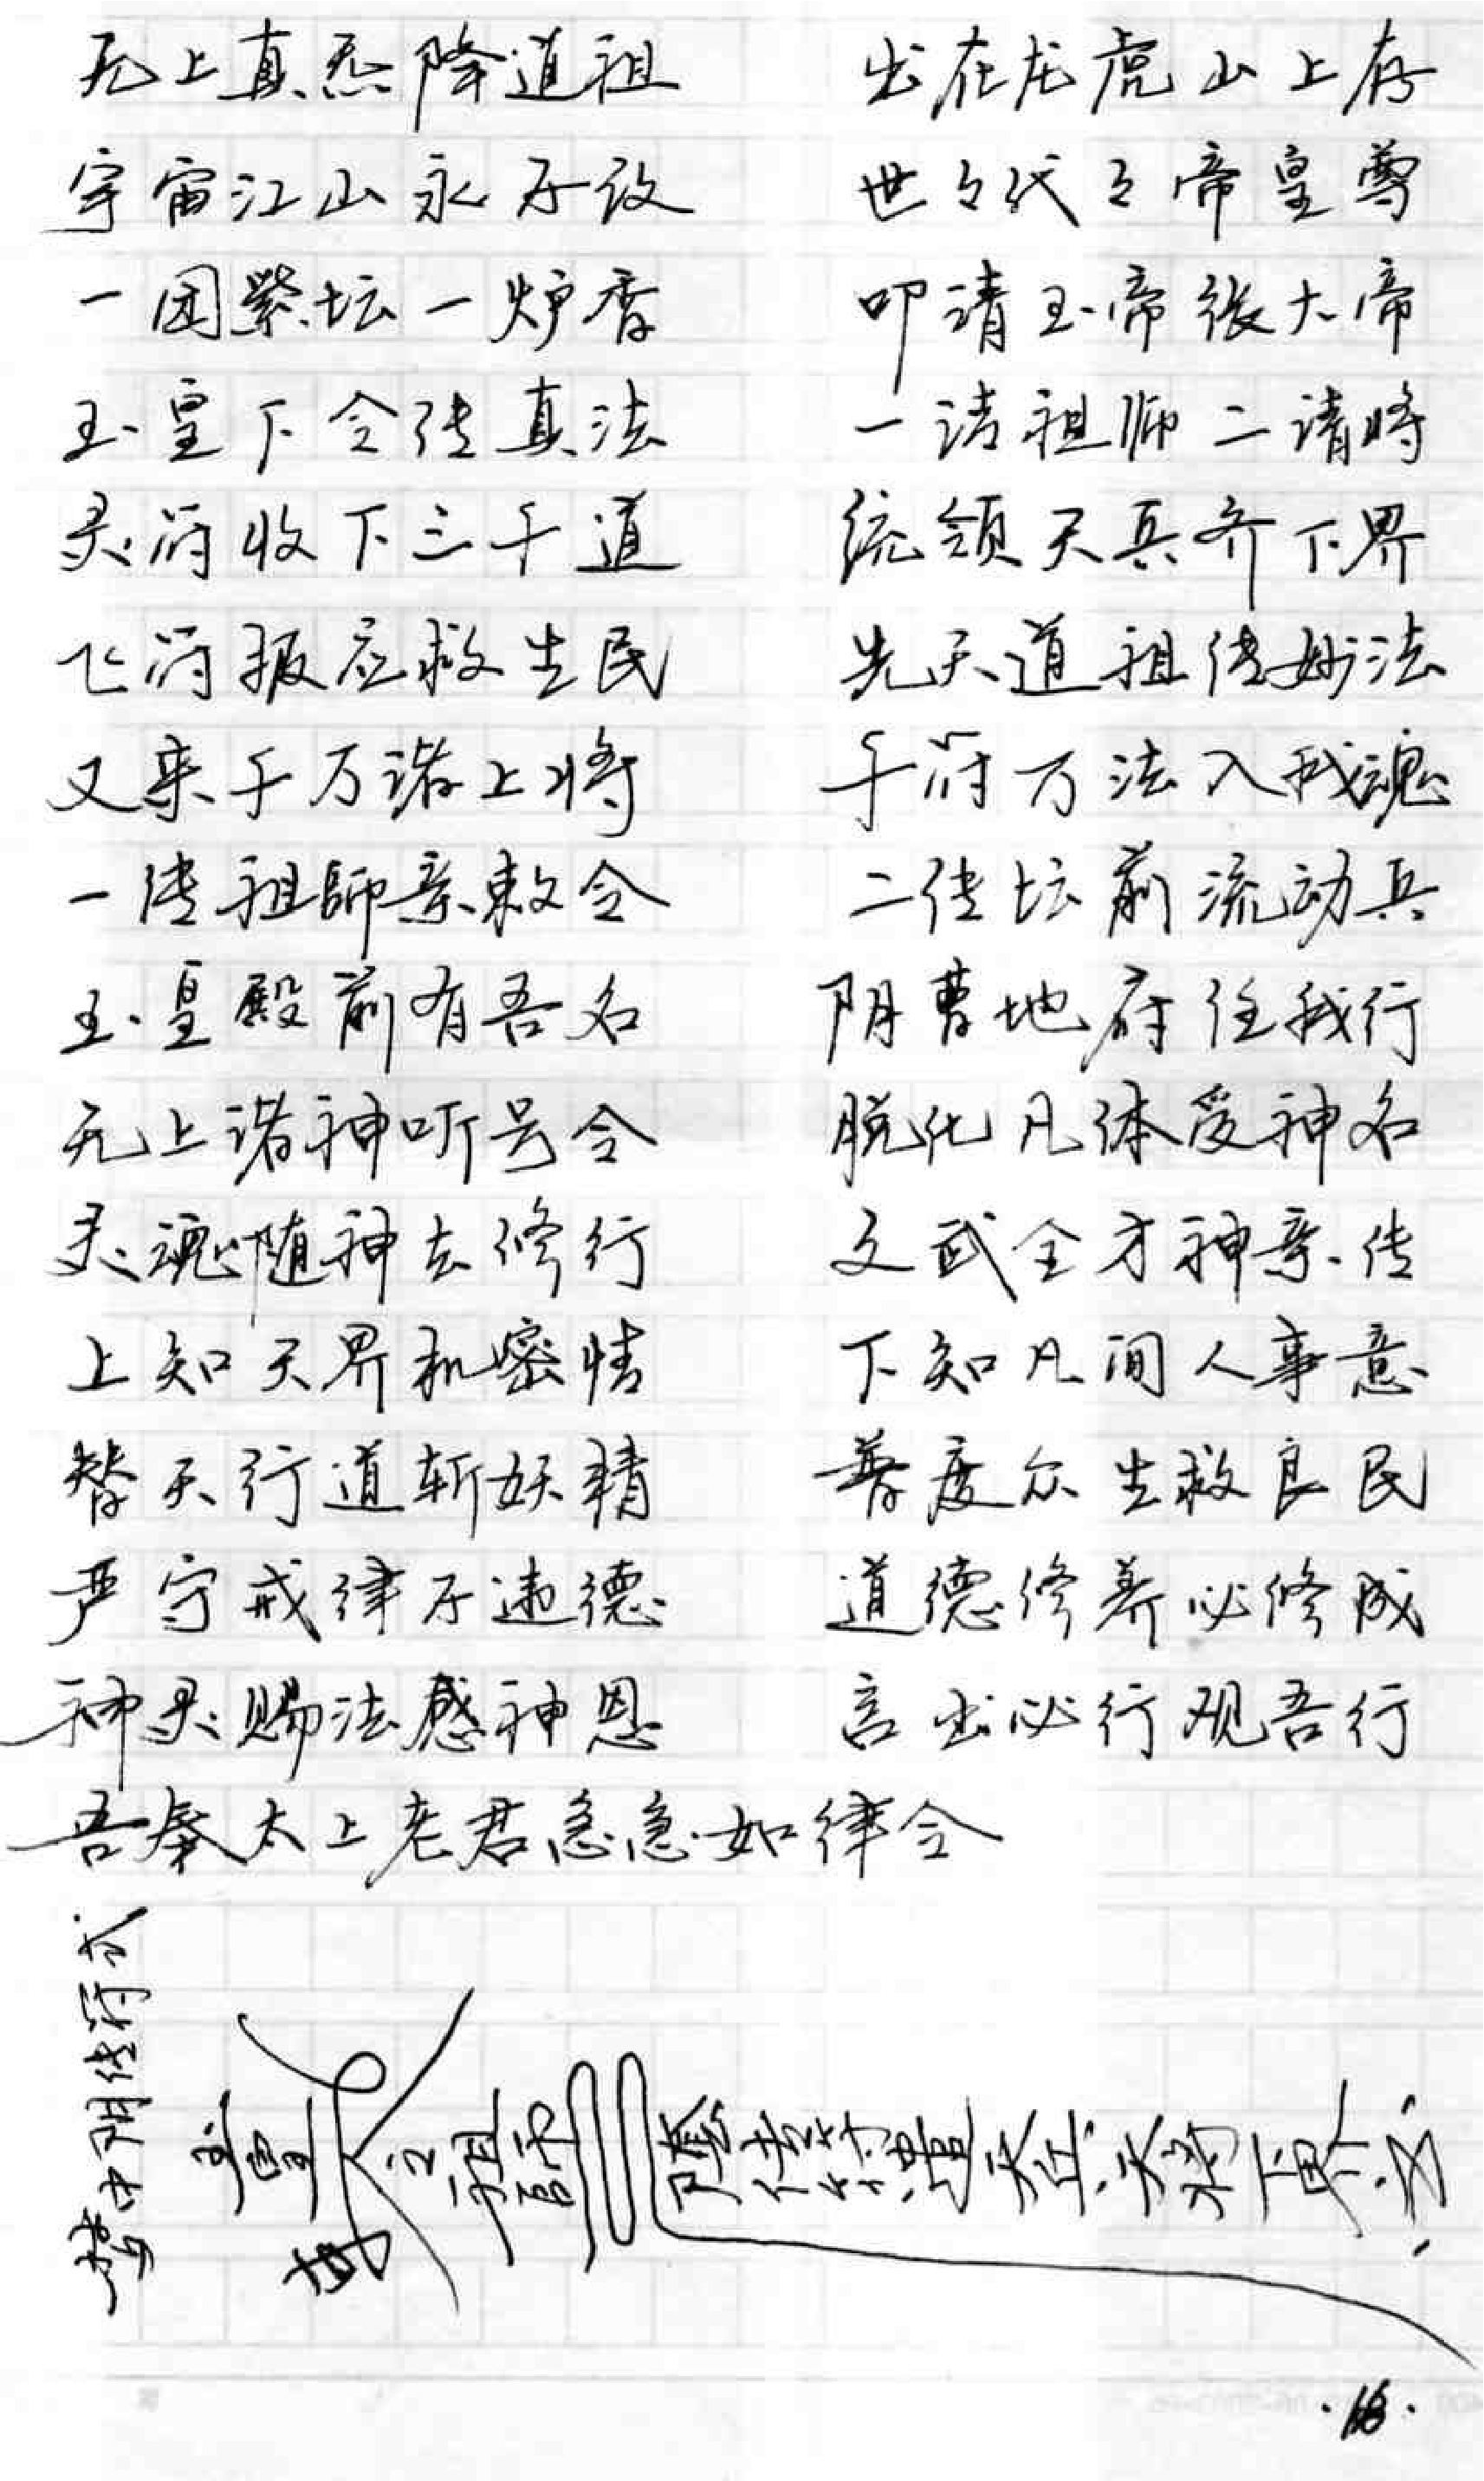 无上真炁降道祖 出在龙虎山上存
宇宙江山永不改 世々代々帝皇尊
一团紫坛一炉香 叩请玉帝张大帝
玉皇下令传真法 一请祖师二请将
灵符收下三千道 统领天兵齐下界
飞符报应救生民 先天道祖传妙法
又来千万诸上将 千符万法入我魂
一传祖師亲敕令 二传坛前流动兵
玉皇殿前有吾名 阴曹地府任我行
无上诸神听号令 脱化凡体受神名
灵魂随神去修行 文武全才神亲传
上知天界机密情 下知凡间人事意
替天行道斩妖精 普度众生救良民
严守戒律不违德 道德修养必修成
神灵赐法感神恩 言出必行观吾行
吾奉太上老君急急如律令
梦中阴传符式
祖師
陰传
天兵天将下界
·18·